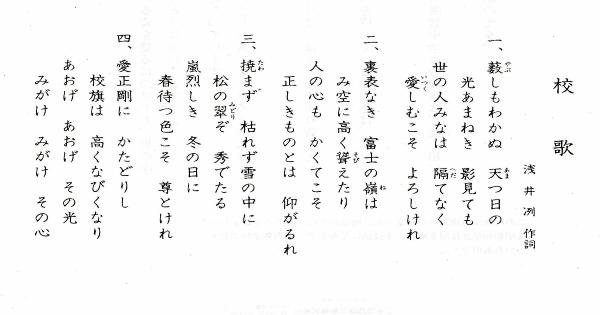 校歌
浅井冽 作詞
一、藪しもわかぬ 天つ日の
光あまねき 影見ても
世の人みなは 隔てなく
愛しむこそ よろしけれ
二、裏表なき 富士の嶺は
み空に高く聳えたり
人の心も かくてこそ
正しきものとは 仰がるれ
三、撓まず 枯れず雪の中に
松の翠ぞ 秀でたる
嵐烈しき 冬の日に
春待つ色こそ 尊とけれ
四、愛正剛に かたどりし
校旗は 高くなびくなり
あおげ あおげ その光
みがけ みがけ その心